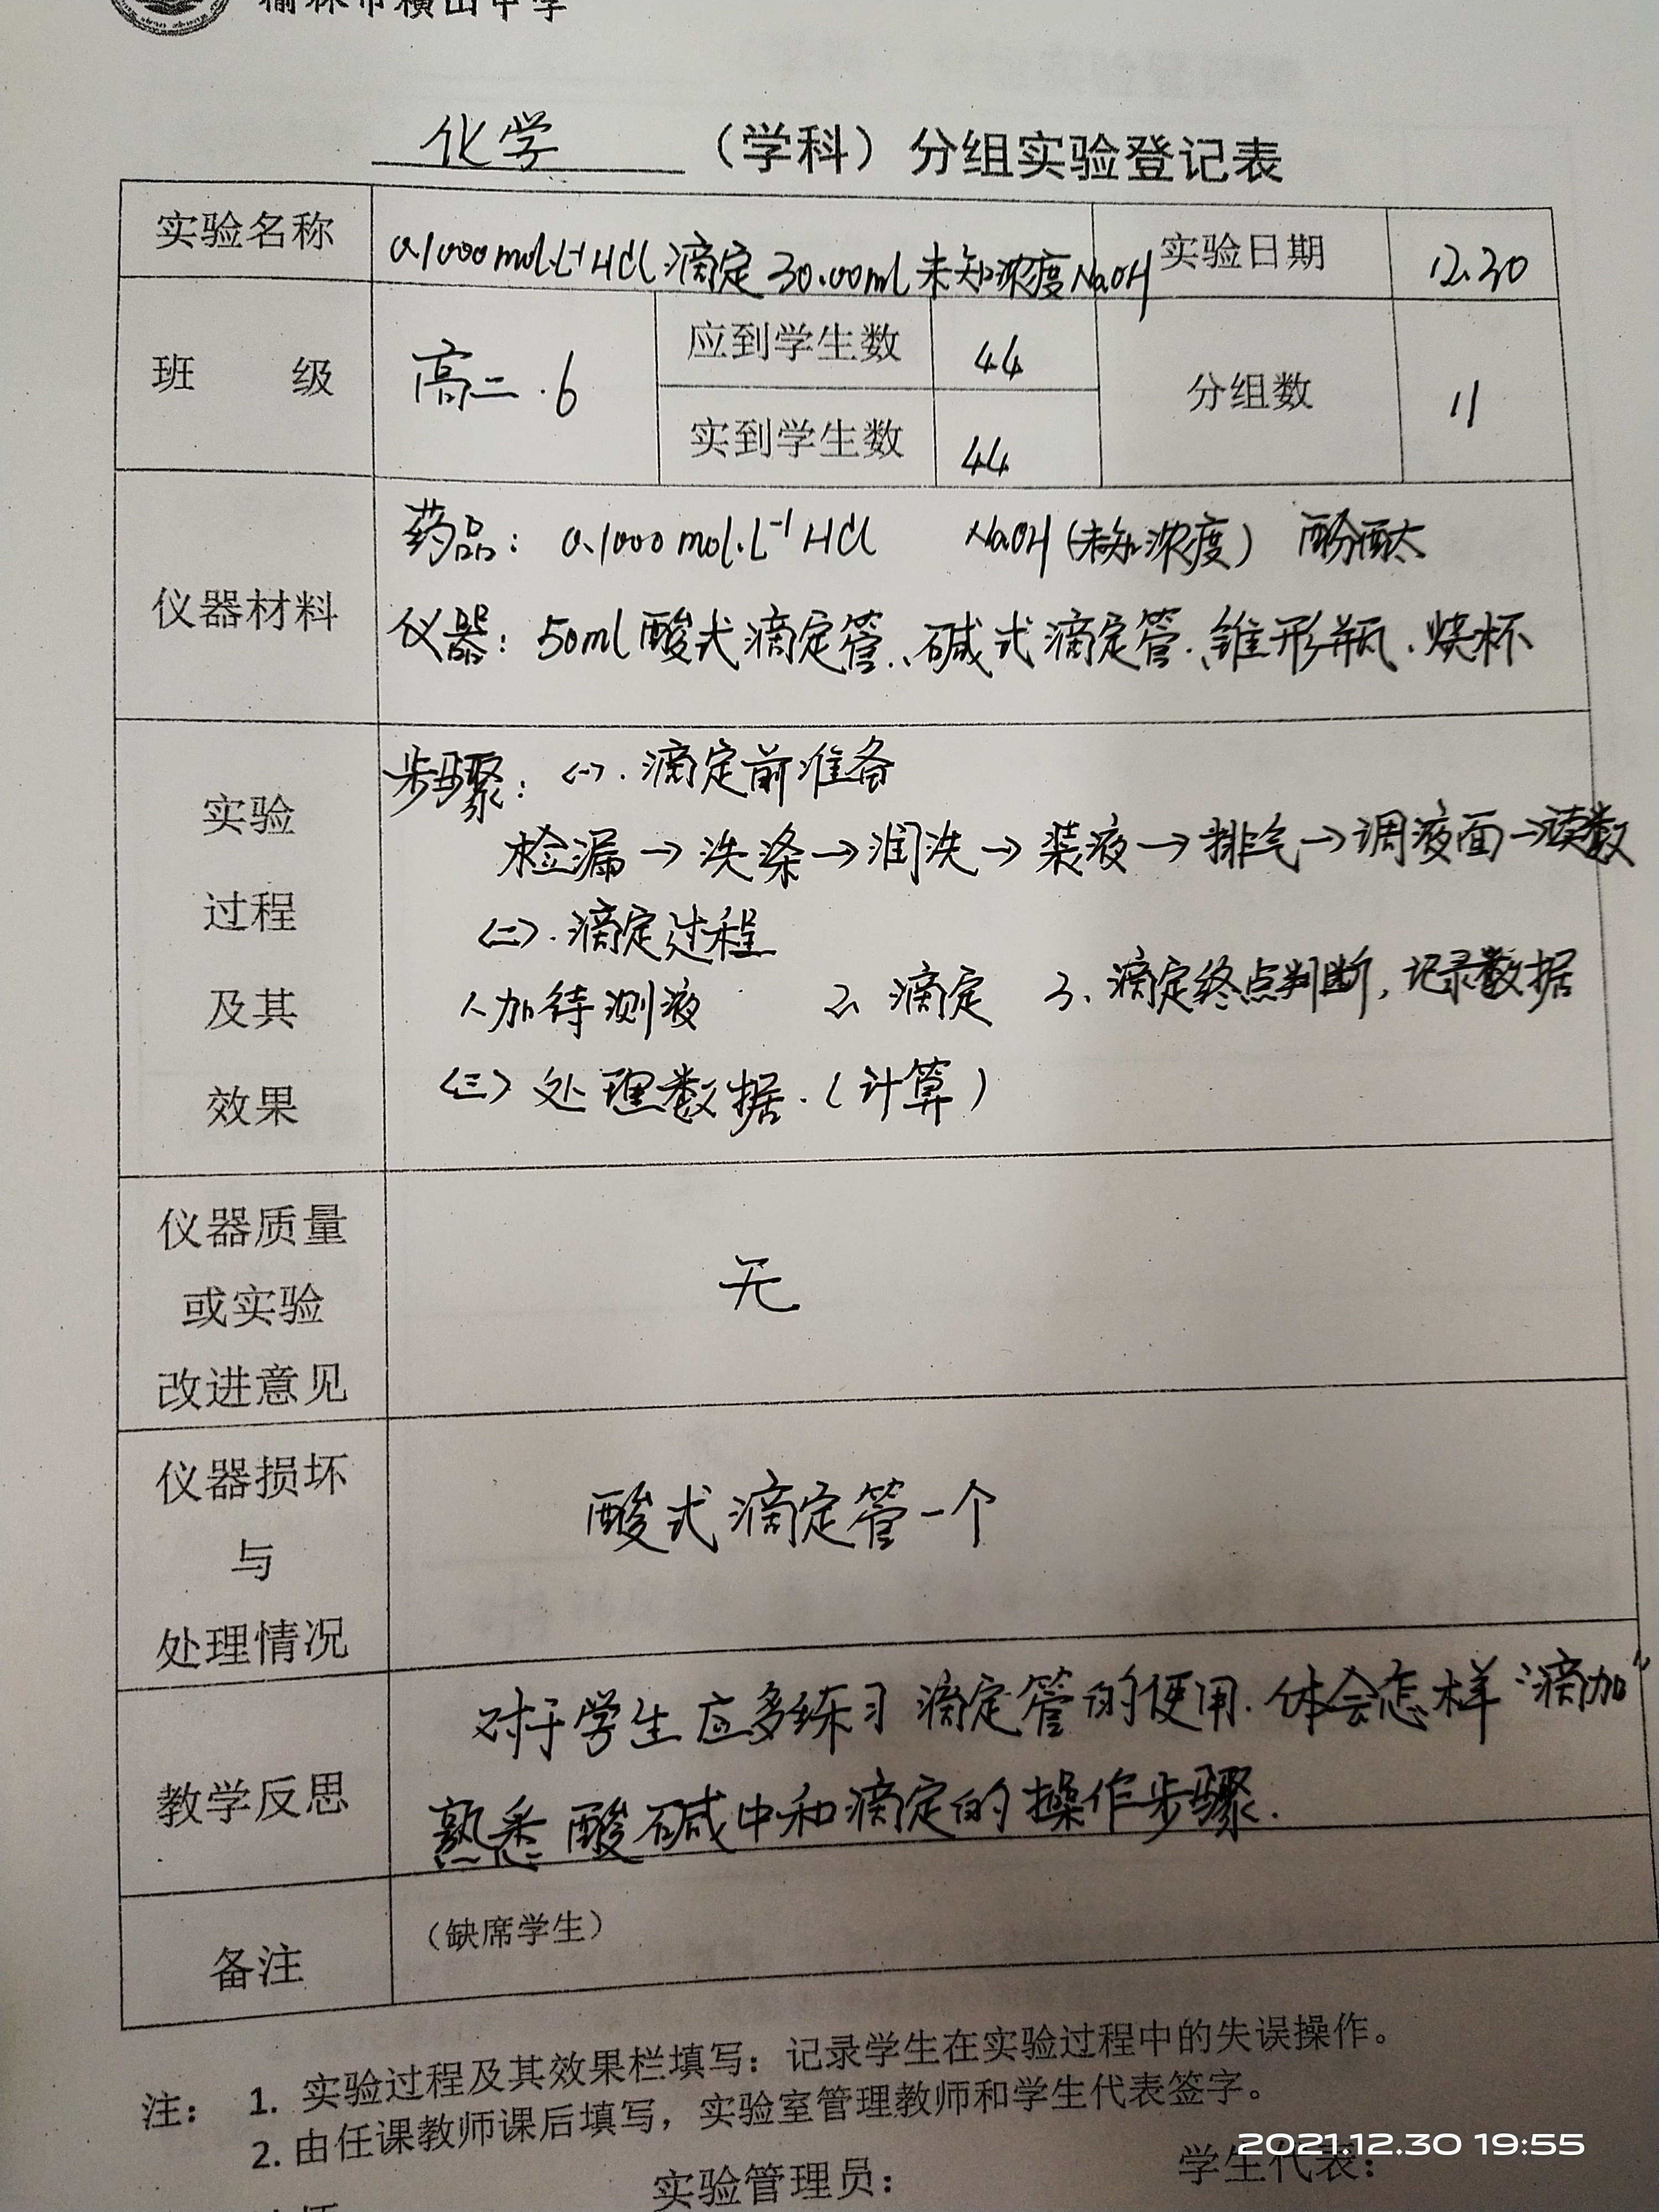 榆林市横山中学
化学 （学科）分组实验登记表
实验名称 0.1000mol·L⁻¹HCl滴定30.00ml未知浓度NaOH 实验日期 12.30
班 级 高二.6 应到学生数 44 分组数 11
实到学生数 44
仪器材料
药品：0.1000mol·L⁻¹HCl NaOH(未知浓度) 酚酞
仪器：50ml酸式滴定管、碱式滴定管、锥形瓶、烧杯
实验
过程
及其
效果
步骤：<一>.滴定前准备
检漏→洗涤→润洗→装液→排气→调液面→读数
<二>.滴定过程
1、加待测液 2、滴定 3、滴定终点判断，记录数据
<三>处理数据.(计算)
仪器质量
或实验
改进意见
无
仪器损坏
与
处理情况
酸式滴定管一个
教学反思
对于学生应多练习滴定管的使用.体会怎样“滴加”
熟悉酸碱中和滴定的操作步骤.
备注 （缺席学生）
注： 1. 实验过程及其效果栏填写：记录学生在实验过程中的失误操作。
2. 由任课教师课后填写，实验室管理教师和学生代表签字。
实验管理员： 学生代表：
2021.12.30 19:55